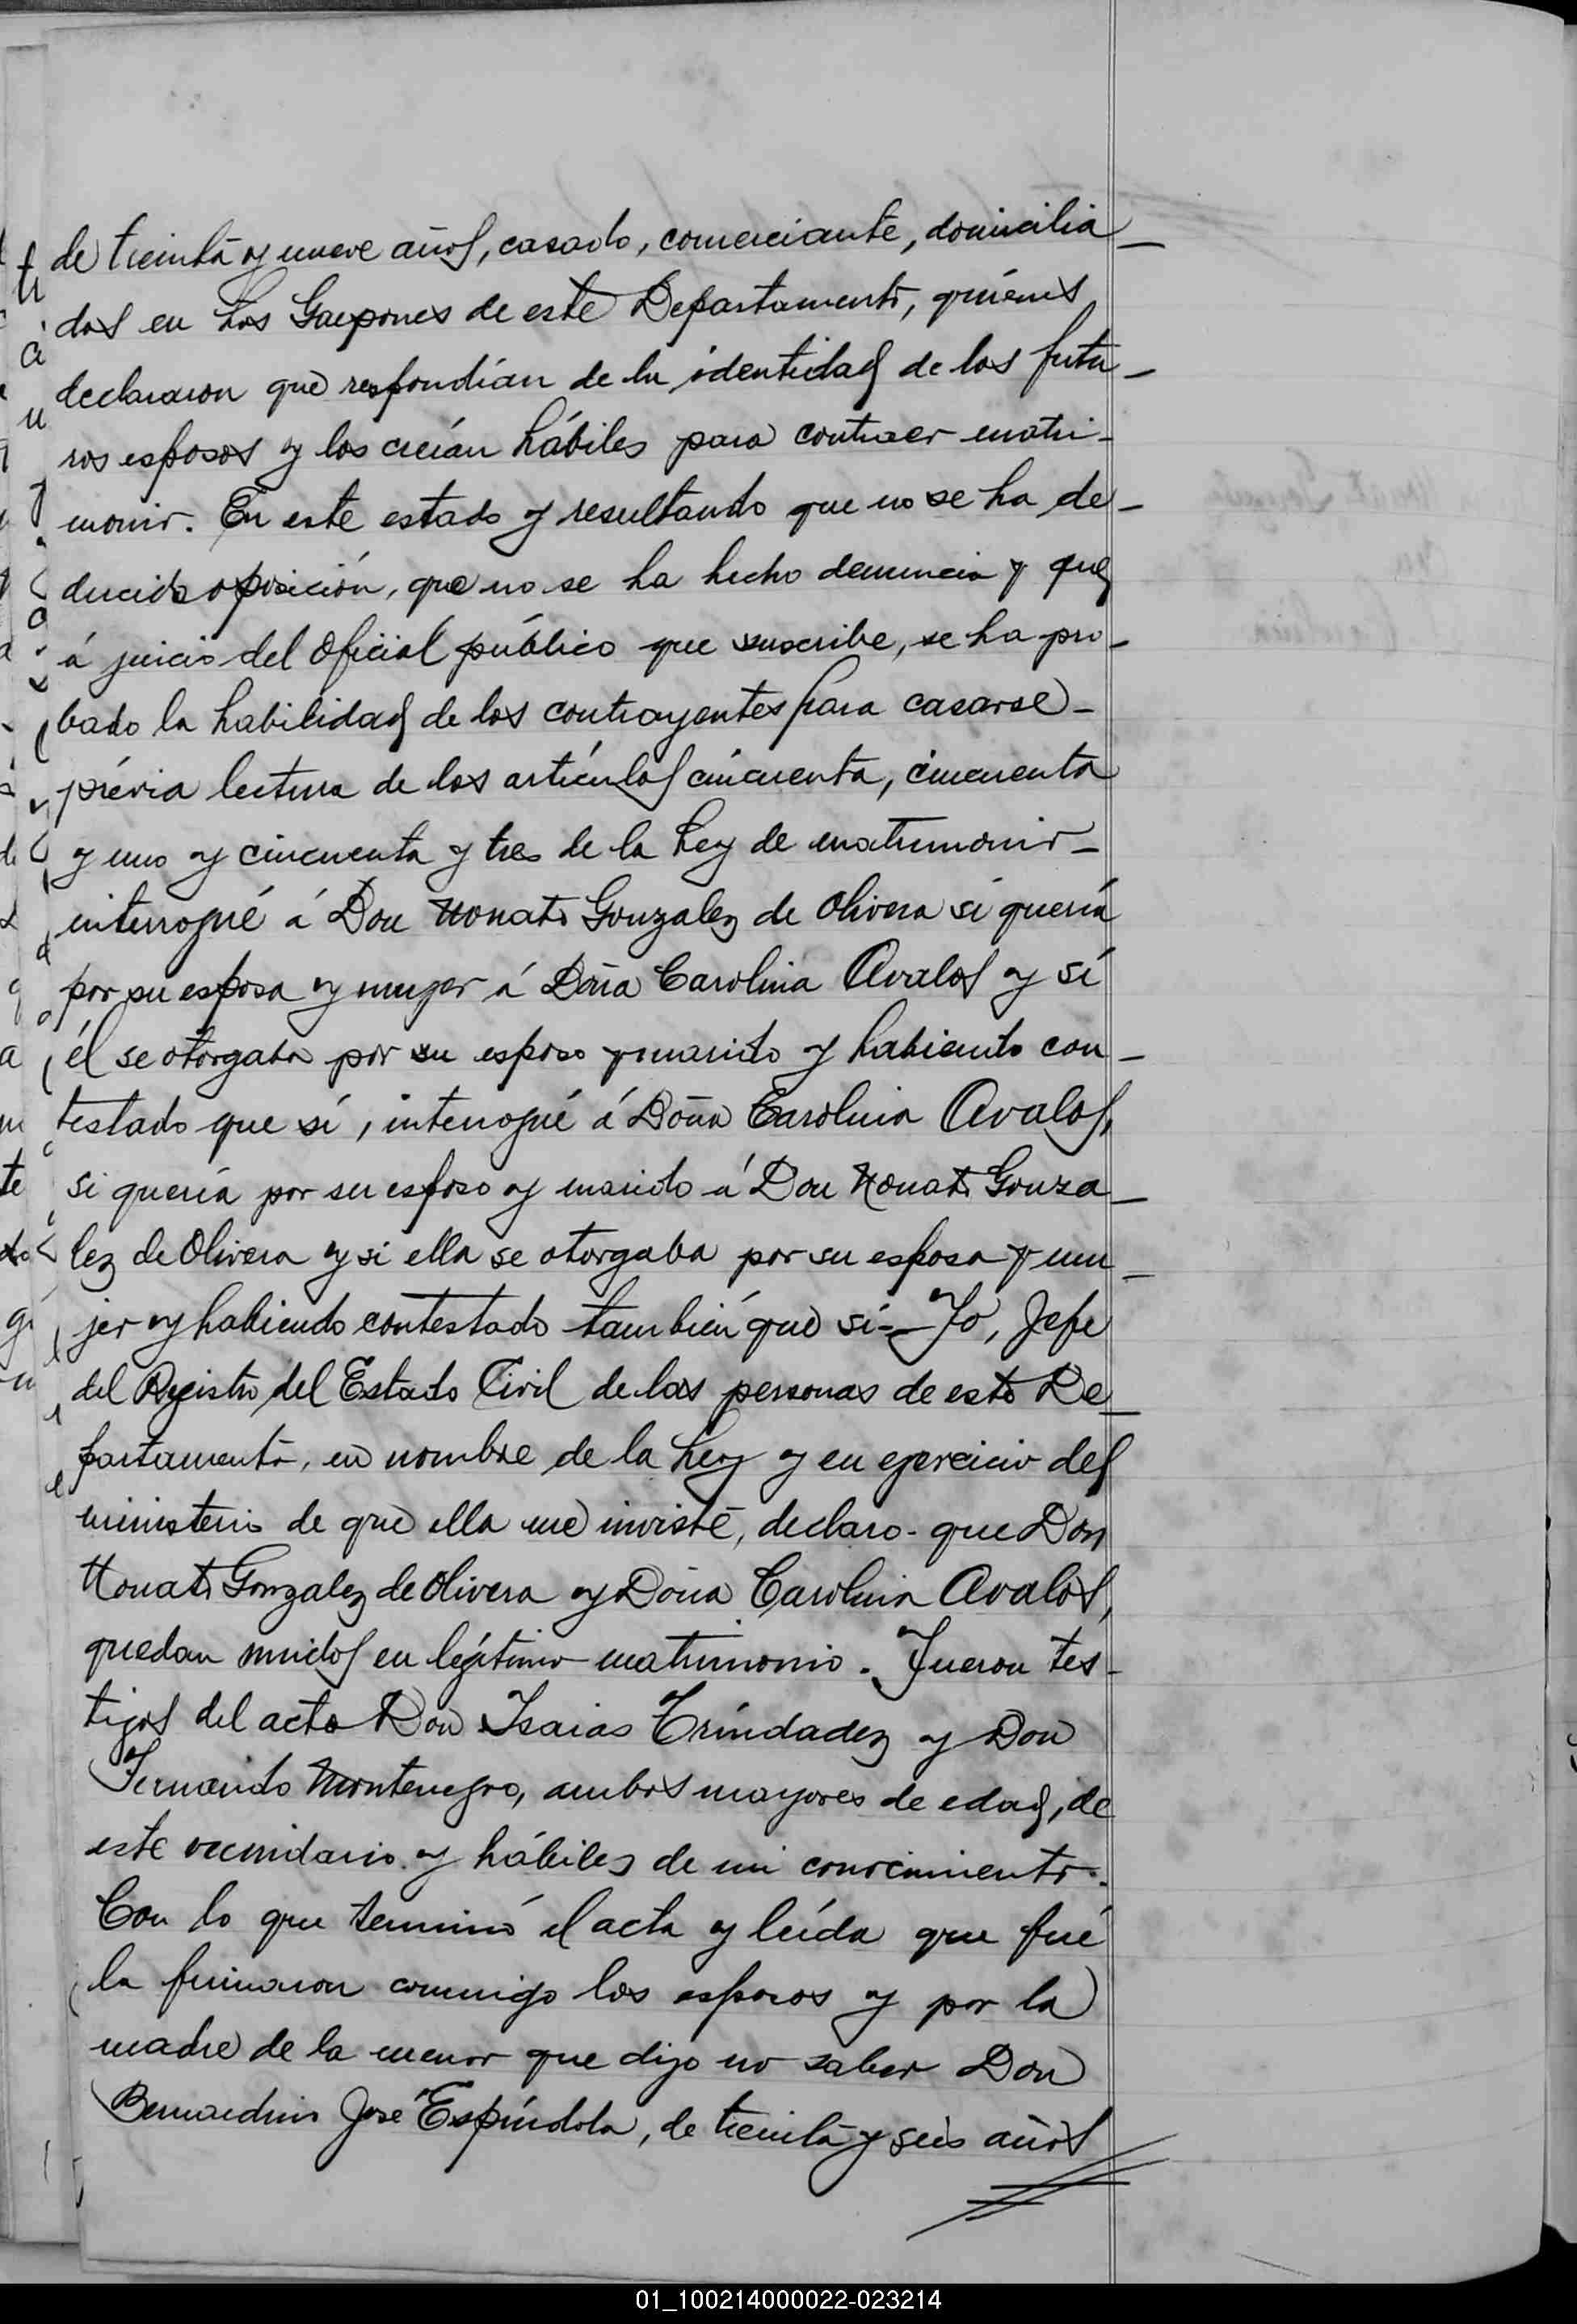 de treinta y nueve años, casado, comerciante, domicilia-
dos en Los Galpones de este Departamento, quiénes
declararon que respondían de la identidad de los futu-
ros esposos y los creían hábiles para contraer matri-
monio. En este estado y resultando que no se ha de-
ducido oposición, que no se ha hecho denuncia y que
á juicio del Oficial público que suscribe, se ha pro-
bado la habilidad de los contrayentes para casarse-
prévia lectura de los artículos cincuenta, cincuenta
y uno y cincuenta y tres de la Ley de matrimonio-
interrogué á Don Nonato Gonzalez de Olivera si quería
por su esposa y mujer á Doña Carolina Avalos y sí
él se otorgaba por su esposo y marido y habiendo con-
testado que sí, interrogué á Doña Carolina Avalos,
si quería por su esposo y marido á Don Nonato Gonza-
lez de Olivera y si ella se otorgaba por su esposa y mu-
jer y habiendo contestado también que sí- Yo, Jefe
del Registro del Estado Civil de las personas de este De-
partamento, en nombre de la Ley y en ejercicio del
ministerio de que ella me inviste, declaro- que Don
Nonato Gonzalez de Olivera y Doña Carolina Avalos,
quedan unidos en legítimo matrimonio. Fueron tes-
tigos del acto Don Isaias Tríndadez y Don
Fernando Montenegro, ambos mayores de edad, de
este vecindario y hábiles de mi conocimiento.
Con lo que terminó el acta y leída que fué
la firmaron conmigo los esposos y por la
madre de la menor que dijo no saber Don
Bernardino José Espíndola, de treinta y seis años
01_100214000022-023214